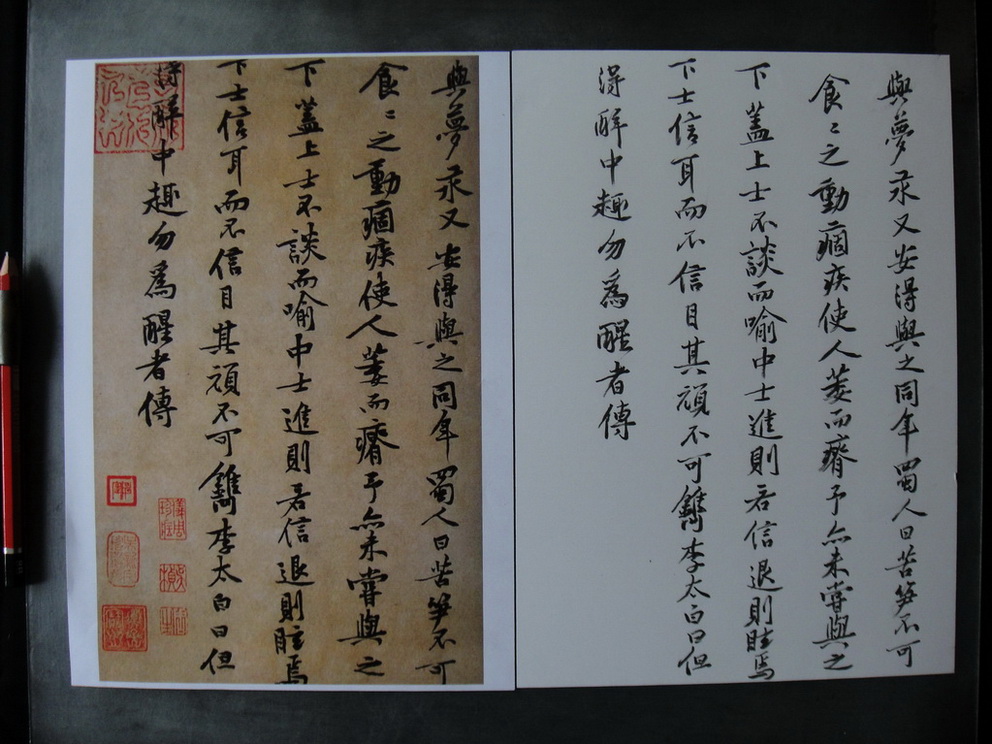 與夢汞又安得與之同年蜀人曰苦笋不可
食〻之動痼疾使人萎而瘠予亦未嘗與之
下蓋上士不談而喻中士進則若信退則眩焉
下士信耳而不信目其頑不可鐫李太白曰但
得醉中趣勿為醒者傳
與夢汞又安得與之同年蜀人曰苦笋不可
食〻之動痼疾使人萎而瘠予亦未嘗與之
下蓋上士不談而喻中士進則若信退則眩焉
下士信耳而不信目其頑不可鐫李太白曰但
得醉中趣勿為醒者傳